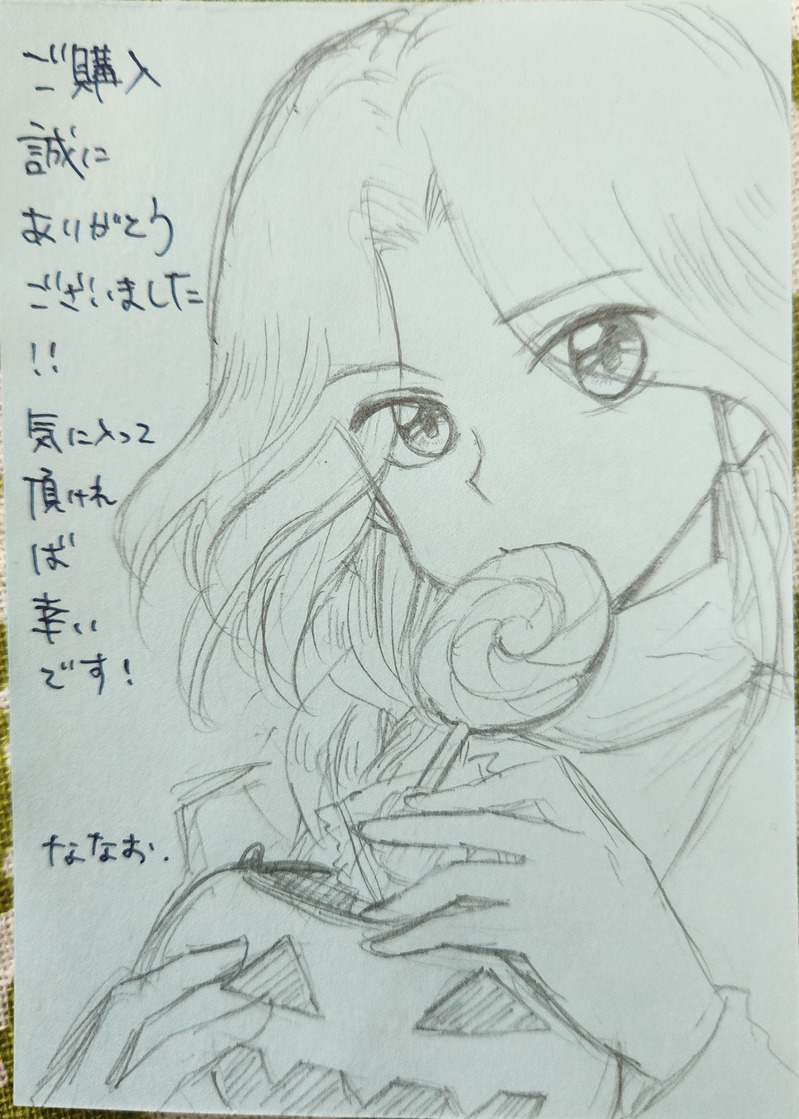 ご購入
誠に
ありがとう
ございました
!!
気に入って
頂けれ
ば
幸い
です!
ななお.